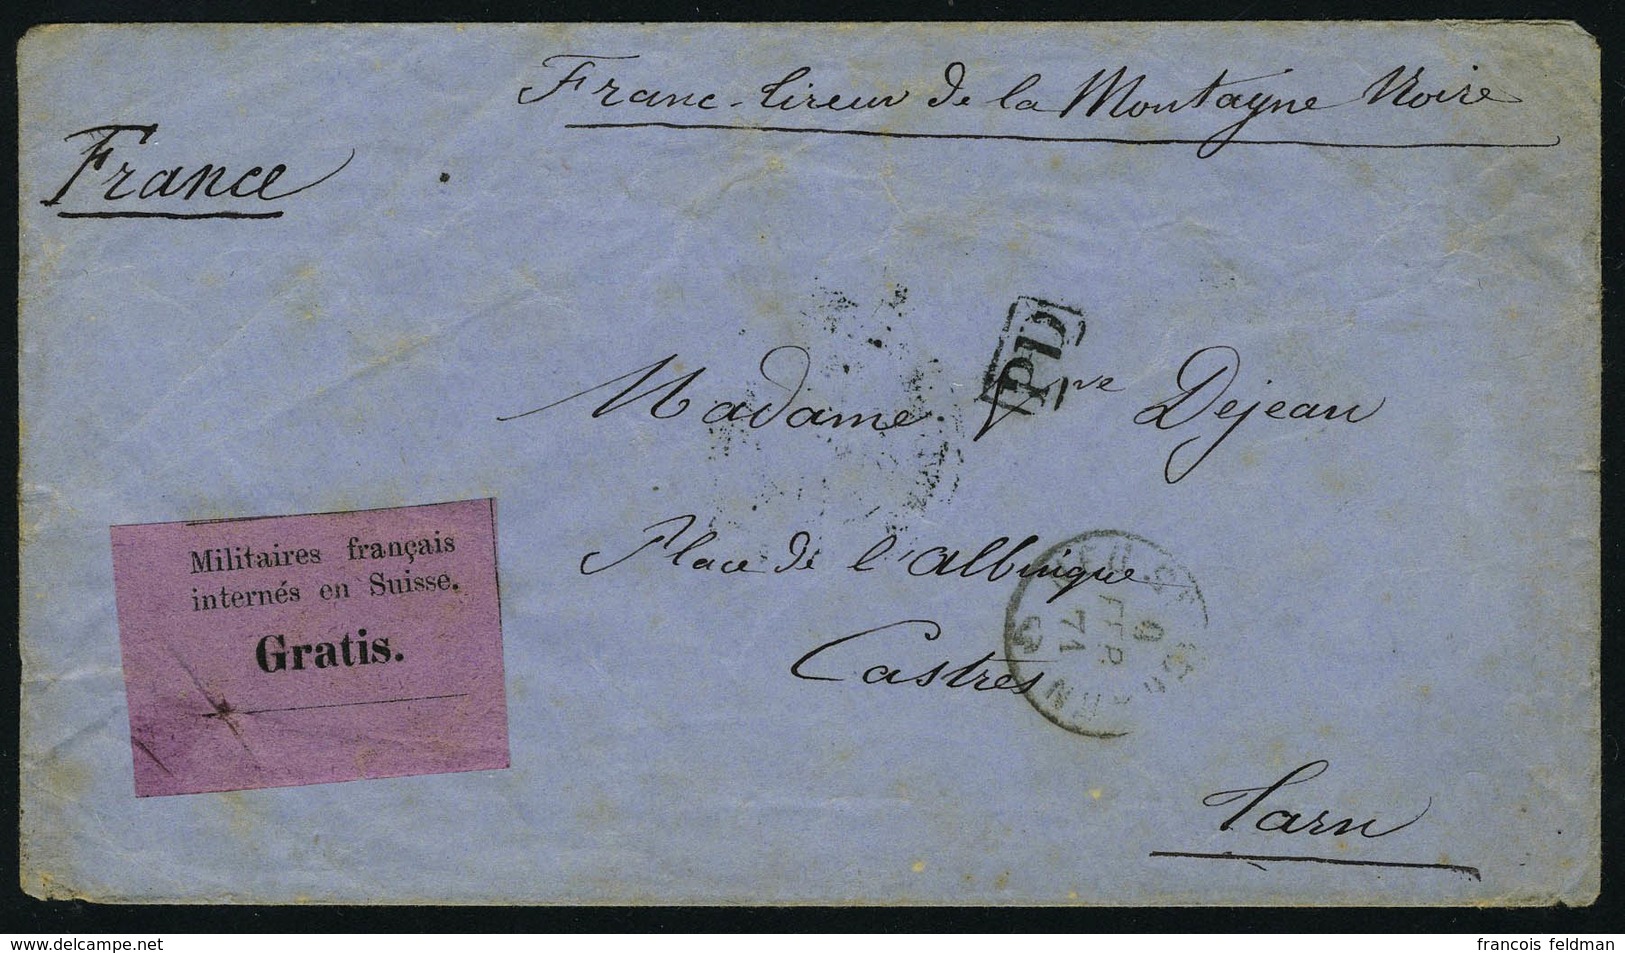 Franc-tireur de la Montagne Noire
France
PD
Madame Vve Dejean
Militaires français
internés en Suisse.
Gratis.
Place de l'albinque
Castres
71
Tarn
delcampe.net
francois feldman